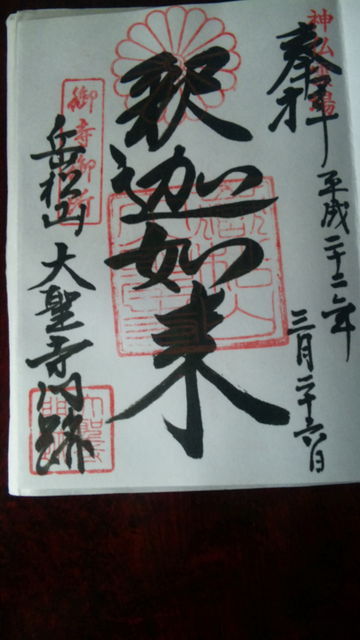 奉拝
平成二十二年
三月二十六日
釈迦如来
御寺御所
岳松山 大聖寺門跡